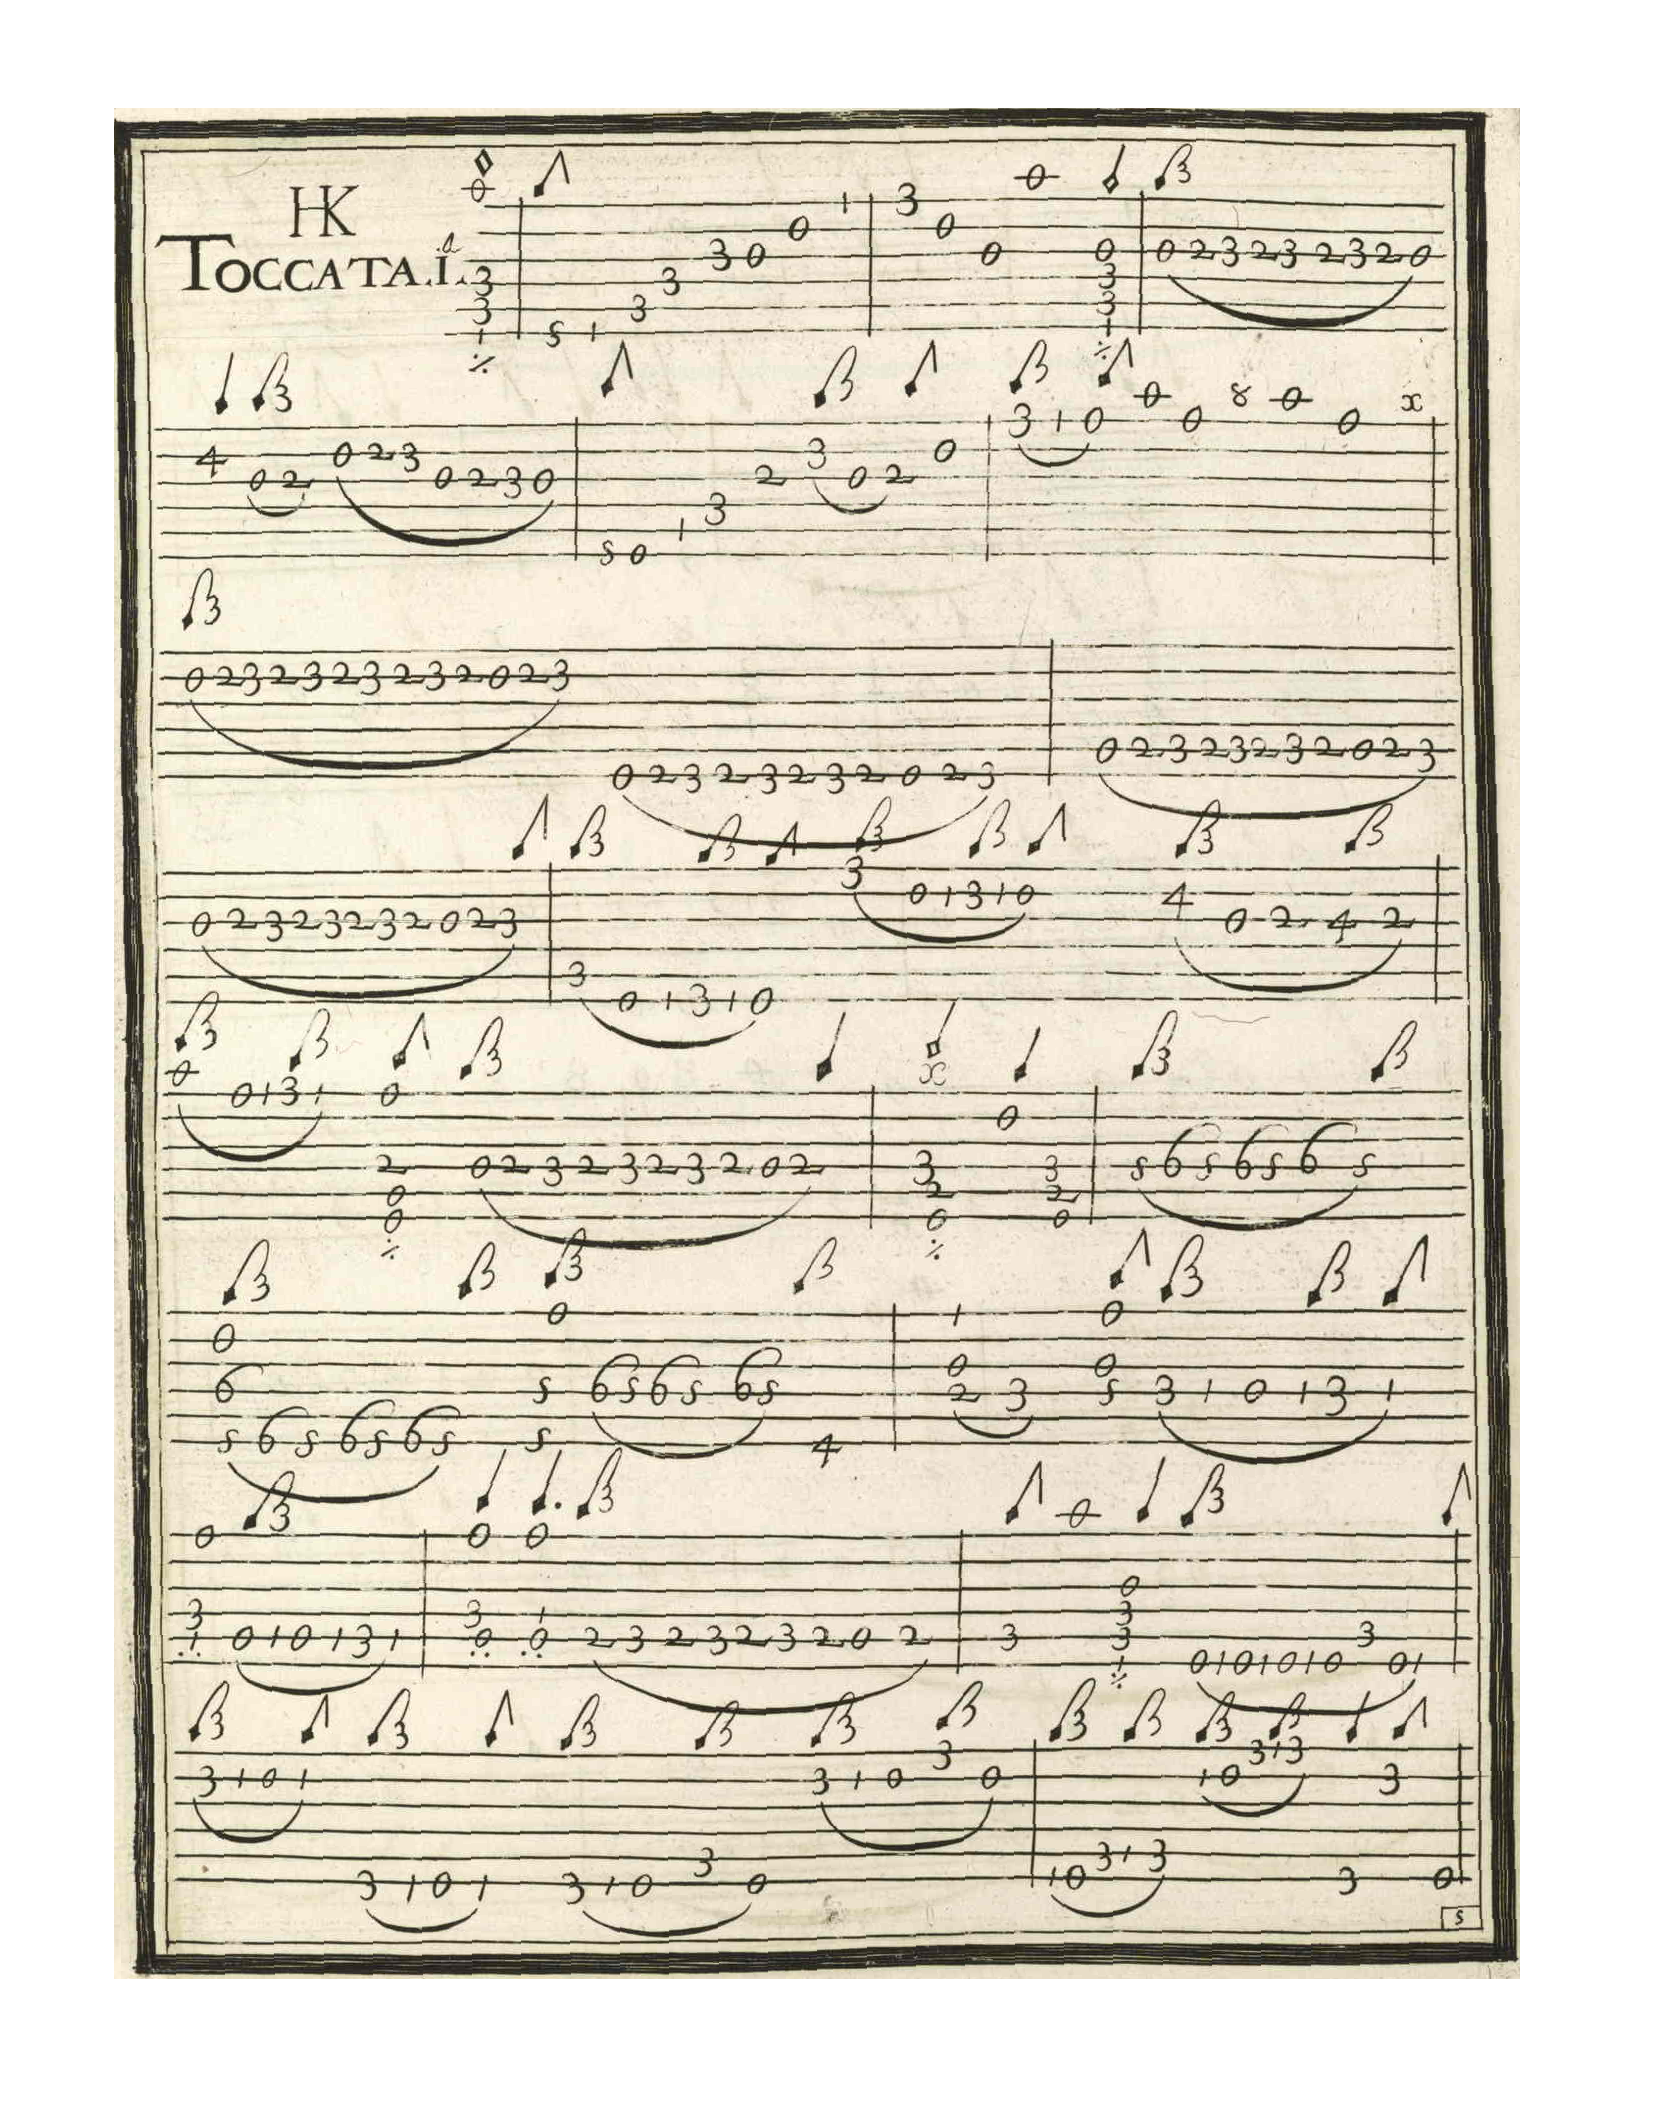 HK
TOCCATA.I.ª
5